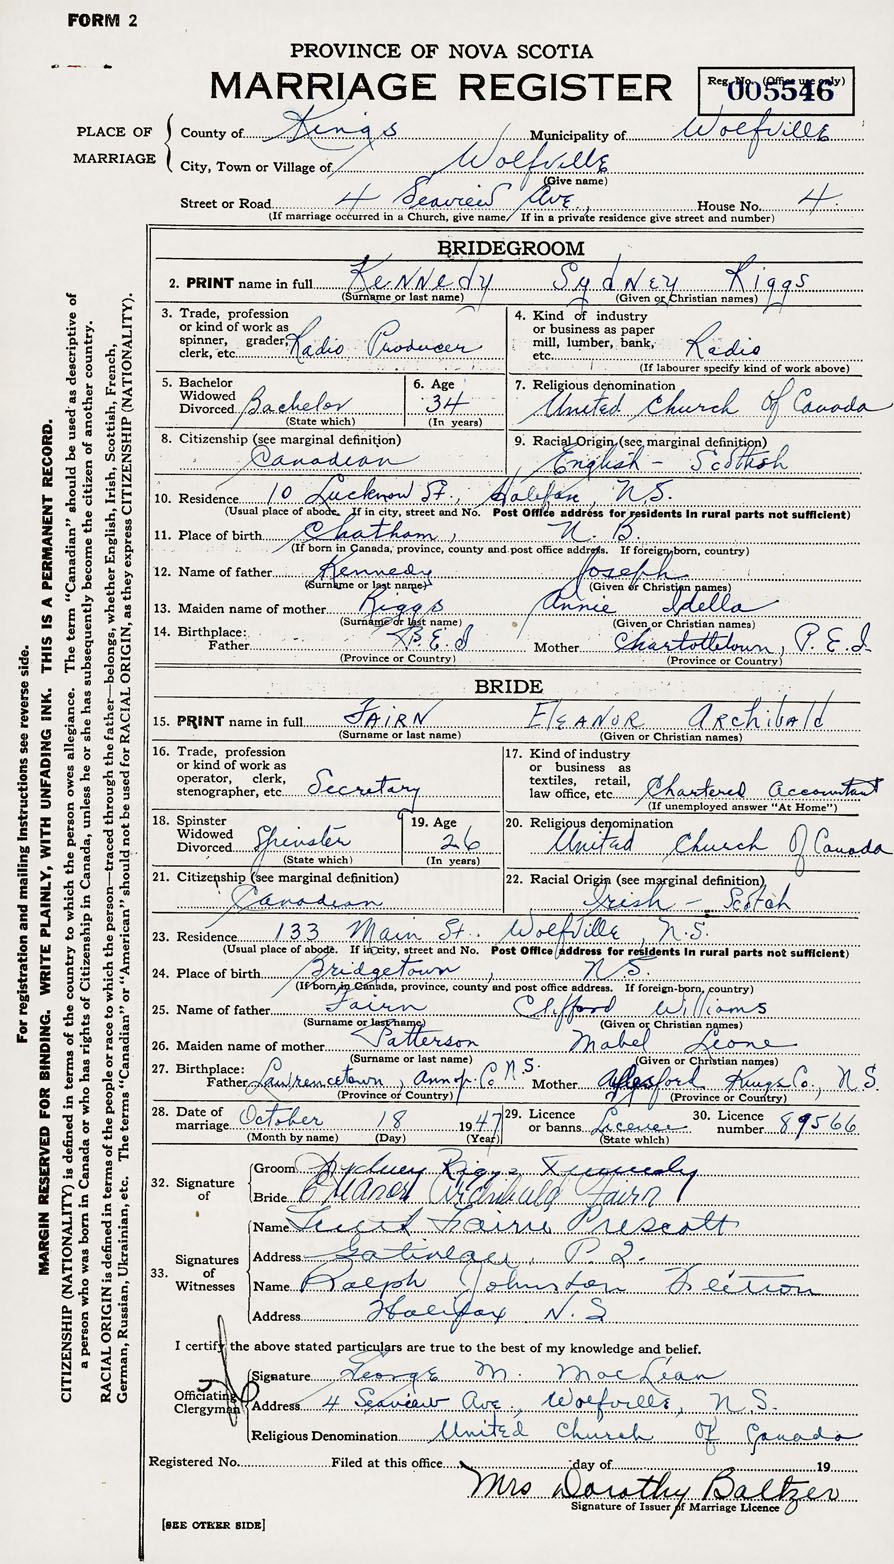 FORM 2
PROVINCE OF NOVA SCOTIA
MARRIAGE REGISTER
Reg. No. (Office use only)
005546
PLACE OF MARRIAGE
County of Kings Municipality of Wolfville
City, Town or Village of Wolfville
(Give name)
Street or Road 4 Seaview Ave., House No. 4.
(If marriage occurred in a Church, give name If in a private residence give street and number)
BRIDEGROOM
2. PRINT name in full Kennedy Sydney Riggs
(Surname or last name) (Given or Christian names)
3. Trade, profession or kind of work as spinner, grader, clerk, etc. Radio Producer
4. Kind of industry or business as paper mill, lumber, bank, etc. Radio
(If labourer specify kind of work above)
5. Bachelor Widowed Divorced Bachelor
(State which)
6. Age 34
(In years)
7. Religious denomination
United Church of Canada
8. Citizenship (see marginal definition)
Canadian
9. Racial Origin (see marginal definition)
English - Scottish
10. Residence 10 Lucknow St., Halifax, N.S.
(Usual place of abode. If in city, street and No. Post Office address for residents in rural parts not sufficient)
11. Place of birth Chatham, N. B.
(If born in Canada, province, county and post office address. If foreign born, country)
12. Name of father Kennedy Joseph
(Surname or last name) (Given or Christian names)
13. Maiden name of mother Riggs Annie Idella
(Surname or last name) (Given or Christian names)
14. Birthplace: Father P.E.I Mother Charlottetown, P.E.I.
(Province or Country) (Province or Country)
BRIDE
15. PRINT name in full FAIRN ELEANOR ARCHIBALD
(Surname or last name) (Given or Christian names)
16. Trade, profession or kind of work as operator, clerk, stenographer, etc. Secretary
17. Kind of industry or business as textiles, retail, law office, etc. Chartered Accountant
(If unemployed answer "At Home")
18. Spinster Widowed Divorced Spinster
(State which)
19. Age 26
(In years)
20. Religious denomination
United Church of Canada
21. Citizenship (see marginal definition)
Canadian
22. Racial Origin (see marginal definition)
Irish - Scotch
23. Residence 133 Main St. Wolfville, N.S.
(Usual place of abode. If in city, street and No. Post Office address for residents in rural parts not sufficient)
24. Place of birth Bridgetown, N.S.
(If born in Canada, province, county and post office address. If foreign-born, country)
25. Name of father Fairn Clifford Williams
(Surname or last name) (Given or Christian names)
26. Maiden name of mother Patterson Mabel Leone
(Surname or last name) (Given or Christian names)
27. Birthplace: Father Lawrencetown, Annap. Co N.S. Mother Aylesford Kings Co., N.S.
(Province or Country) (Province or Country)
28. Date of marriage October 18 1947
(Month by name) (Day) (Year)
29. Licence or banns License
(State which)
30. Licence number 89566
32. Signature of
Groom Sydney Riggs Kennedy
Bride Eleanor Archibald Fairn
33. Signatures of Witnesses
Name Fairn Prescott
Address Gatineau, P.Q.
Name Ralph Johnston
Address Halifax N.S
I certify the above stated particulars are true to the best of my knowledge and belief.
Officiating Clergyman
Signature George M. MacLean
Address 4 Seaview Ave., Wolfville, N.S.
Religious Denomination United Church of Canada
Registered No. Filed at this office day of 19
Mrs Dorothy Baltzer
Signature of Issuer of Marriage Licence
[SEE OTHER SIDE]
For registration and mailing instructions see reverse side.
MARGIN RESERVED FOR BINDING. WRITE PLAINLY, WITH UNFADING INK. THIS IS A PERMANENT RECORD.
CITIZENSHIP (NATIONALITY) is defined in terms of the country to which the person owes allegiance. The term "Canadian" should be used as descriptive of
a person who was born in Canada or who has rights of Citizenship in Canada, unless he or she has subsequently become the citizen of another country.
RACIAL ORIGIN is defined in terms of the people or race to which the person—traced through the father—belongs, whether English, Irish, Scottish, French,
German, Russian, Ukrainian, etc. The terms "Canadian" or "American" should not be used for RACIAL ORIGIN, as they express CITIZENSHIP (NATIONALITY).